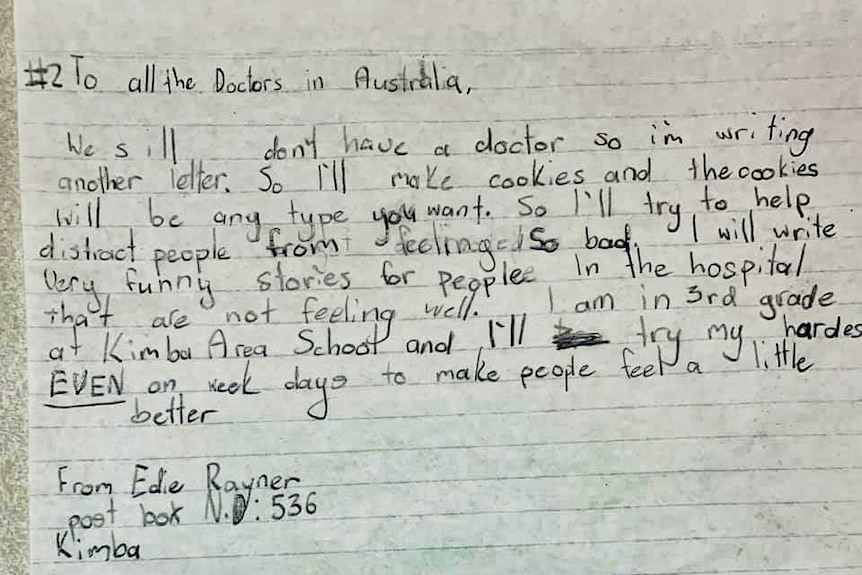 #2 To all the Doctors in Australia,
We sill don't have a doctor so i'm writing
another letter. So I'll make cookies and the cookies
will be any type you want. So I'll try to help
distract people from feeling so bad. I will write
Very funny stories for people In the hospital
that are not feeling well. I am in 3rd grade
at Kimba Area School and I'll try my hardes
EVEN on week days to make people feel a little
better
From Edie Rayner
post box N.O: 536
Kimba